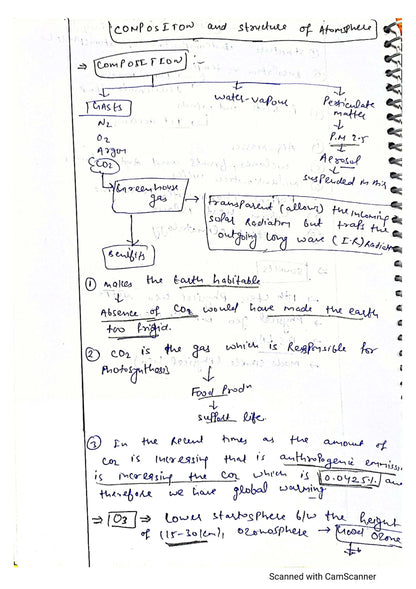 COMPOSITON and structure of Atomsphere
⇒ COMPOSITION :-
Gases
water-vapour
Particulate
matter
N2
O2
Argon
CO2
P.M 2.5
Aerosol
suspended in this
Greenhouse
gas
Transparent (allows) the incoming
solar Radiation but traps the
outgoing long wave (I.R) Radiation
Benefits
① makes the Earth habitable
Absence of CO2 would have made the earth
too frigid.
② CO2 is the gas which is Responsible for
Photosynthesis
Food Prodn
support life.
③ In the recent times as the amount of
CO2 is increasing that is anthropogenic emission
is increasing the CO2 which is 0.0425% and
therefore we have global warming
⇒ O3 ⇒ Lower startosphere b/w the height
of (15-30km), ozonosphere → Good Ozone
Scanned with CamScanner